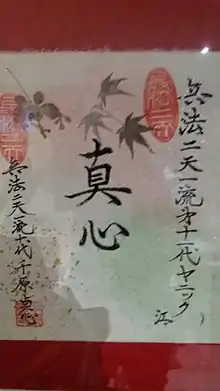 兵法二天一流第十一代ヤニック
江
真心
兵法二天一流十代